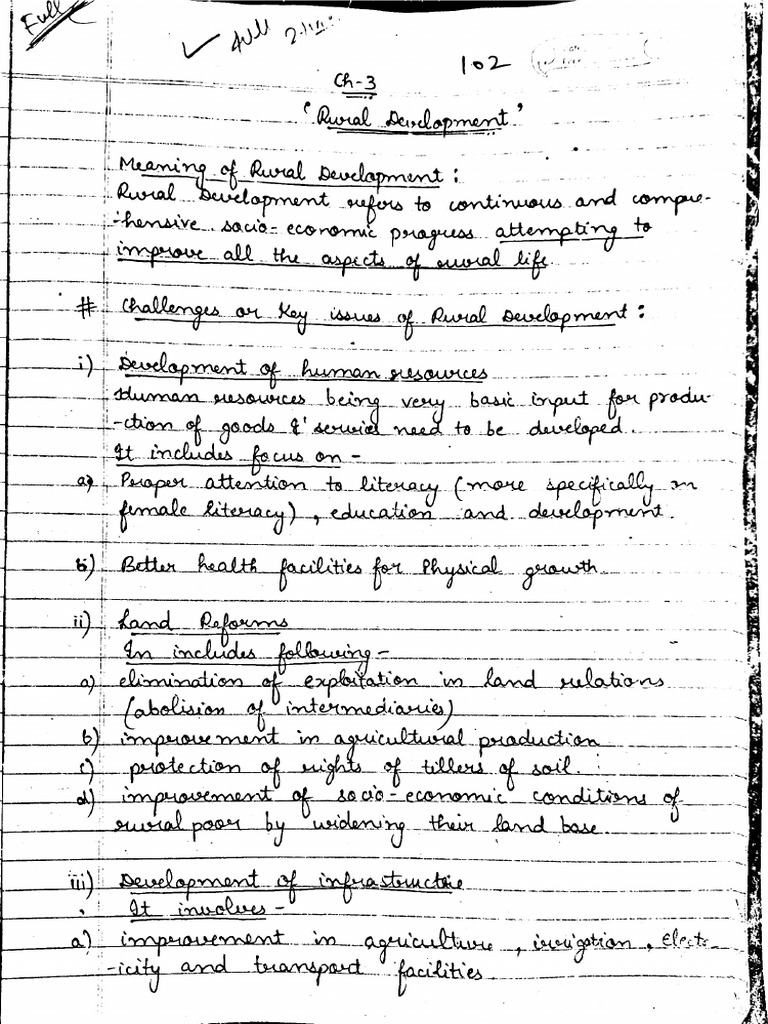 Full
102
Ch-3
"Rural Development"
Meaning of Rural Development :
Rural Development refers to continuous and compre-
-hensive socio-economic progress attempting to
improve all the aspects of rural life.
# Challenges or Key issues of Rural Development :
i) Development of human resources
Human resources being very basic input for produ-
-ction of goods & services need to be developed.
It includes focus on -
a) Proper attention to literacy (more specifically on
female literacy), education and development.
b) Better health facilities for Physical growth
ii) Land Reforms
In includes following -
a) elimination of exploitation in land relations
(abolision of intermediaries)
b) improvement in agricultural production
c) protection of rights of tillers of soil.
d) improvement of socio-economic conditions of
rural poor by widening their land base.
iii) Development of infrastructre
It involves -
a) improvement in agriculture, irrigation, Electr-
-icity and transport facilities